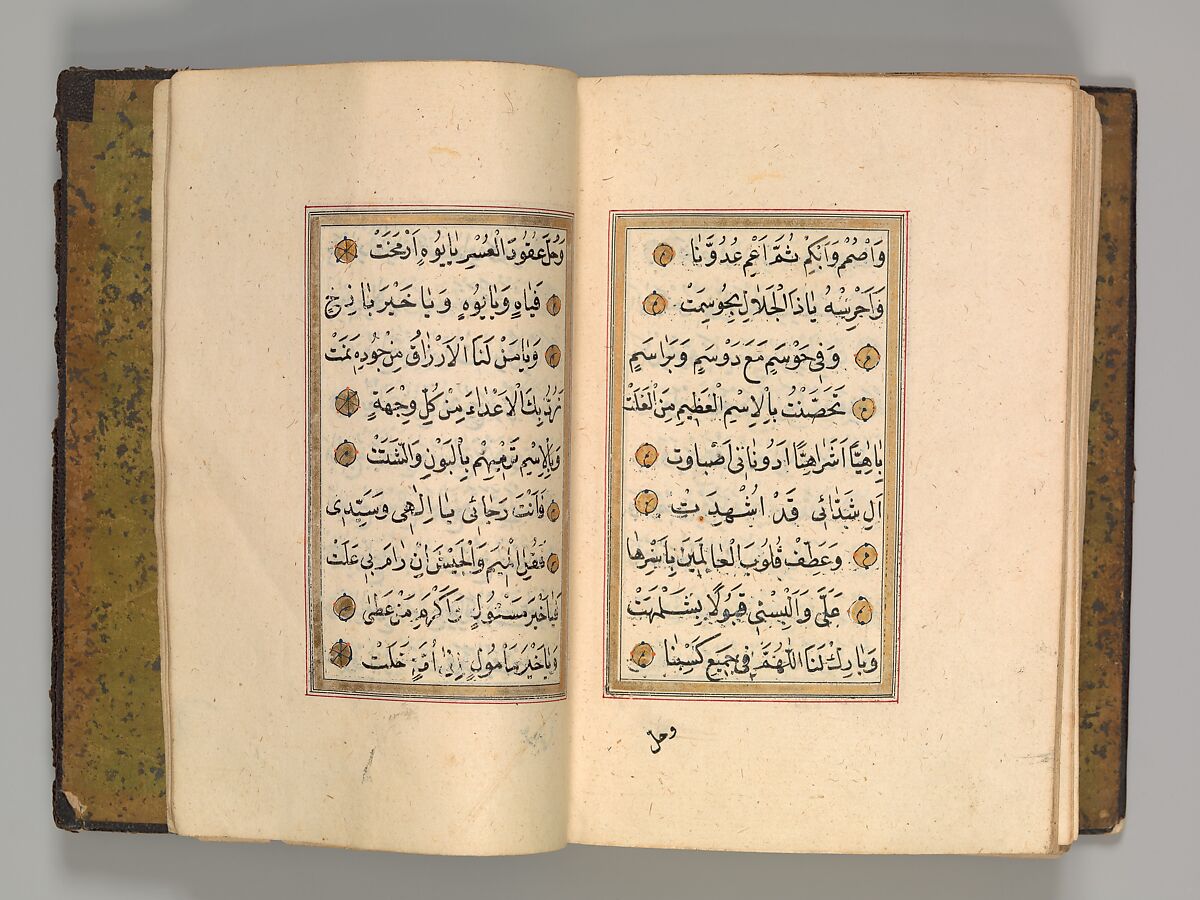 وَاَصْمُمْ وَاَبْكِمْ ثُمَّ اَعْمِ عُدُوَّنَا
وَاَخْرِسْهُ يَاذَا الْجَلَالِ بِحُوسِمَتْ
وَفِي حَوْسَمٍ مَعَ دَوْسَمٍ وَبَرَاسَمٍ
تَحَصَّنْتُ بِالْاِسْمِ الْعَظِيمِ مِنَ الْغَلَتْ
اَلِ شَدَّائى قَدْ
وَعَطِّفْ قُلُوبَ الْعَالَمِينَ بِاَسْرِهَا
عَلَيَّ وَاَلْبِسْنِي قَبُولًا بِشَلْمَهَتْ
وَبَارِكْ لَنَا اللّٰهُمَّ فِي جَمِيعِ كَسْبِنَا
وحل
وَحُلَّ عُقُودَ الْعُسْرِ بِايُوهٍ اَرْمَخَتْ
فَيَاهٍ وَيَايُوهٍ وَيَا خَيْرَ بَارِخٍ
وَيَا مَنْ لَنَا الْاَرْزَاقُ مِنْ جُودِهِ نَمَتْ
نَرُدُّ بِكَ الْاَعْدَاءَ مِنْ كُلِّ وِجْهَةٍ
وَبِالْاِسْمِ تَرْمِيهِمْ بِالْبَوْنِ وَالشَّتَتْ
فَاَنْتَ رَجَائِي يَا اِلٰهِي وَسَيِّدِي
اِنْ رَامَ بِي غَلَتْ
فَيَا خَيْرَ مَسْئُولٍ وَاَكْرَمَ مَنْ عَطَى
وَيَا خَيْرَ مَامُولٍ